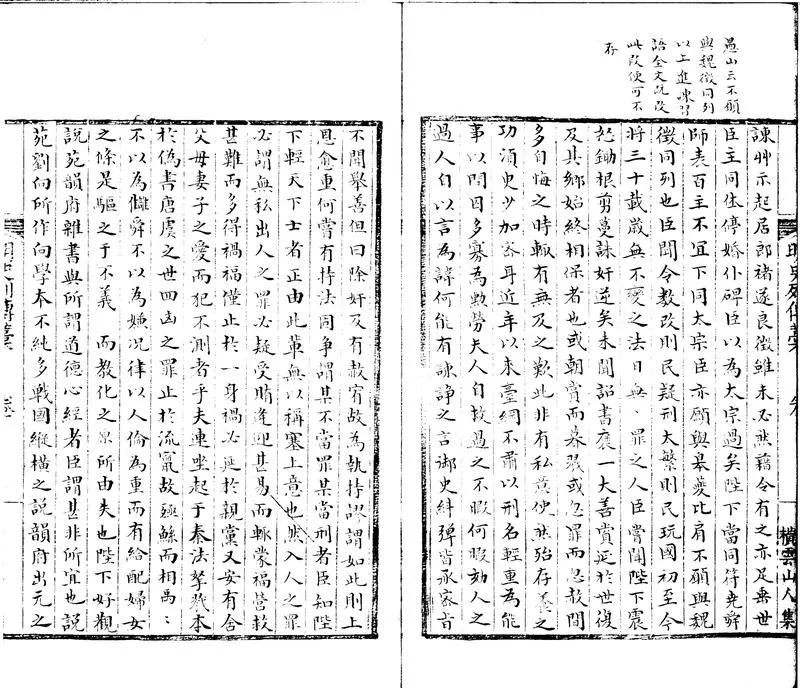 愚山云不願
與魏徵同列
以上進諫習
語全文既改
此段便可不
存
諫艸示起居郎褚遂良徵雖未必然藉令有之亦足垂世
臣主同体停婚仆碑臣以為太宗過矣陛下當同符堯舜
師表百王不宜下同太宗臣亦願與皋夔比肩不願與魏
徵同列也臣聞令数改則民疑刑太繁則民玩國初至今
將三十載歲無不變之法日無罪之人臣嘗聞陛下震
怒鋤根剪蔓誅奸逆矣未聞詔書褒一大善賞延於世復
及其鄉始終相保者也或朝賞而暮戮或忽罪而忽赦間
多自悔之時輒有無及之歎此非有私意使然殆存養之
功須史少加密耳近年以来臺綱不肅以刑名輕重為能
事以問囚多寡為勲勞夫人自救過之不暇何暇劾人之
過人自以言為諱何能有諫諍之言御史糾彈皆承密旨
明史列傳稿
橫雲山人集
不聞舉善但曰除奸及有赦宥故為執持謬謂如此則上
恩愈重何嘗有持法同争謂某不當罪某當刑者臣知陛
下輕天下士者正由此輩無以稱塞上意也然入人之罪
必謂無私出人之罪必疑受賄逢迎甚易而輒蒙福營救
甚難而多得禍禍僅止於一身禍必延於親黨又安有舍
父母妻子之愛而犯不測者乎夫連坐起于秦法孥戮本
於偽書唐虞之世四凶之罪止於流竄故殛鯀而相禹:
不以為讎舜不以為嫌况律以人倫為重而有給配婦女
之條是驅之于不義 而教化之所由失也陛下好觀
說苑韻府雜書與所謂道德心經者臣謂甚非所宜也說
苑劉向所作向學本不純多戰國縱橫之說韻府出元之